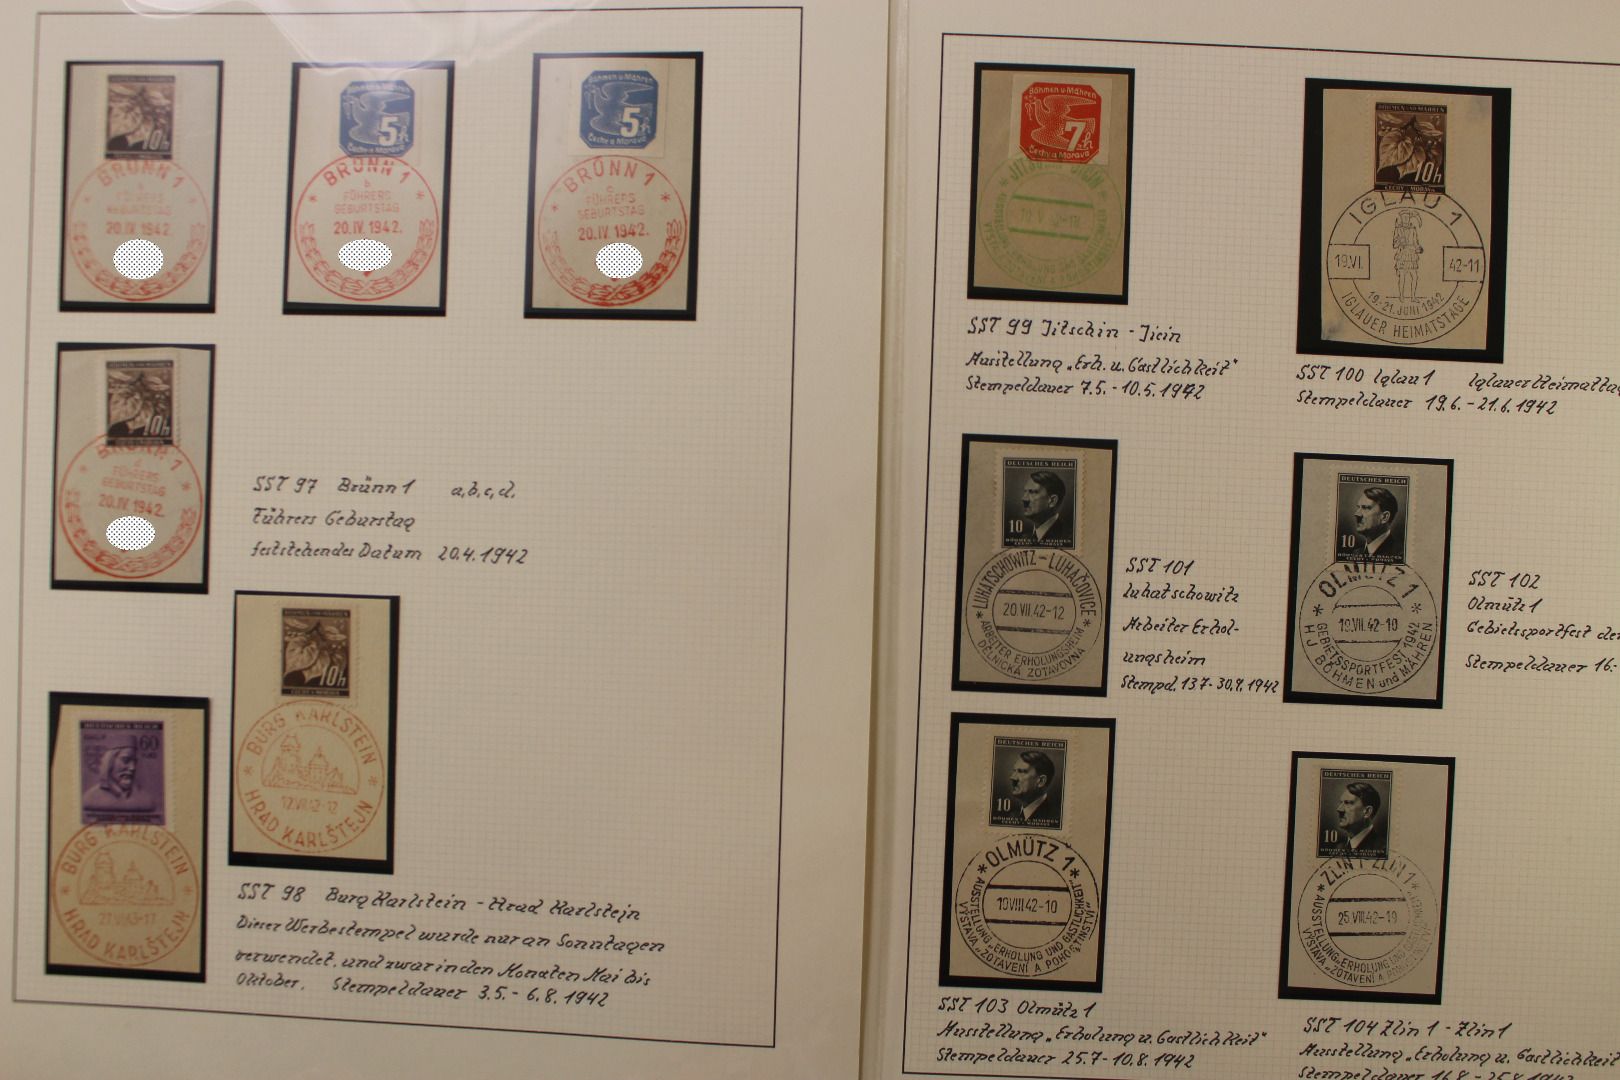 10h
BRÜNN 1
b
FÜHRERS
GEBURTSTAG
20.IV.1942.
Böhmen u. Mähren
5h
Čechy a Morava
BRÜNN 1
b
FÜHRERS
GEBURTSTAG
20.IV.1942.
Böhmen u. Mähren
5h
Čechy a Morava
BRÜNN 1
c
FÜHRERS
GEBURTSTAG
20.IV.1942.
10h
BRÜNN 1
d
FÜHRERS
GEBURTSTAG
20.IV.1942.
SST 97 Brünn 1 a,b,c,d.
Führers Geburstag
feststehendes Datum 20.4.1942
10h
BURG KARLSTEIN
12.VII.42-12
HRAD KARLŠTEJN
60
BURG KARLSTEIN
HRAD KARLŠTEJN
SST 98 Burg Karlstein - Hrad Karlstejn
Dieser Werbestempel wurde nur an Sonntagen
verwendet, und zwar in den Monaten Mai bis
Oktober. Stempeldauer 3.5. - 6.8. 1942
Böhmen u. Mähren
7h
Čechy a Morava
SST 99 Jitschin - Jicin
Ausstellung „Erh. u. Gastlichkeit"
Stempeldauer 7.5. - 10.5. 1942
BÖHMEN UND MÄHREN
10h
ČECHY A MORAVA
IGLAU 1
19.VI. 42-11
19.-21. JUNI 1942
IGLAUER HEIMATSTAGE
SST 100 Iglau 1 Iglauer Heimattag
Stempeldauer 19.6. - 21.6. 1942
DEUTSCHES REICH
10
BÖHMEN UND MÄHREN
ČECHY A MORAVA
LUHATSCHOWITZ - LUHAČOVICE
20.VII.42-12
ARBEITER ERHOLUNGSHEIM
DĚLNICKÁ ZOTAVOVNA
SST 101
Luhatschowitz
Arbeiter Erhol-
ungsheim
Stempd. 13.7. - 30.9. 1942
10
BÖHMEN UND MÄHREN
OLMÜTZ 1
19.VII.42-10
GEBIETSSPORTFEST 1942
HJ BÖHMEN und MÄHREN
SST 102
Olmütz 1
Gebietssportfest der
Stempeldauer 16.-
DEUTSCHES REICH
10
BÖHMEN UND MÄHREN
ČECHY A MORAVA
OLMÜTZ 1
10.VIII.42-10
AUSSTELLUNG „ERHOLUNG UND GASTLICHKEIT"
VÝSTAVA „ZOTAVENÍ A POHOSTINSTVÍ"
SST 103 Olmütz 1
Ausstellung „Erholung u. Gastlichkeit"
Stempeldauer 25.7 - 10.8. 1942
DEUTSCHES REICH
10
ZLIN 1 - ZLIN 1
25.VIII.42-19
AUSSTELLUNG „ERHOLUNG UND
VÝSTAVA „ZOTAVENÍ A
SST 104 Zlin 1 - Zlin 1
Ausstellung „Erholung u. Gastlichkeit
Stempeldauer 16.8 - 25.8. 1942